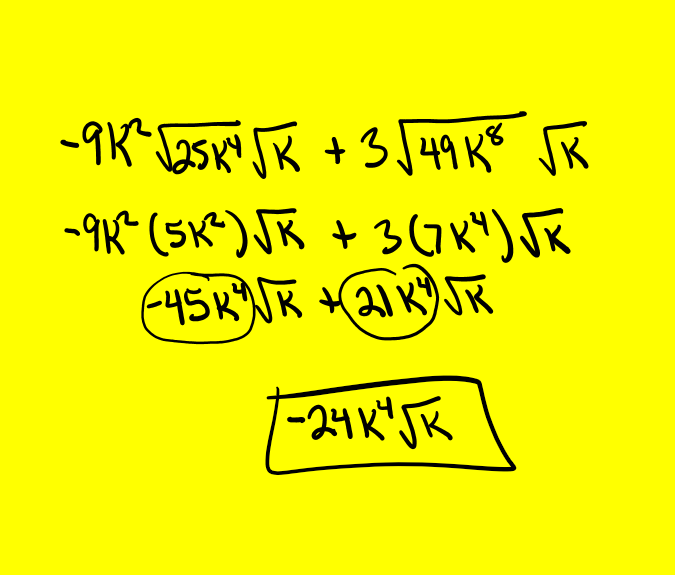 -9K²√25K⁴ √K + 3√49K⁸ √K
-9K²(5K²)√K + 3(7K⁴)√K
-45K⁴√K + 21K⁴√K
-24K⁴√K